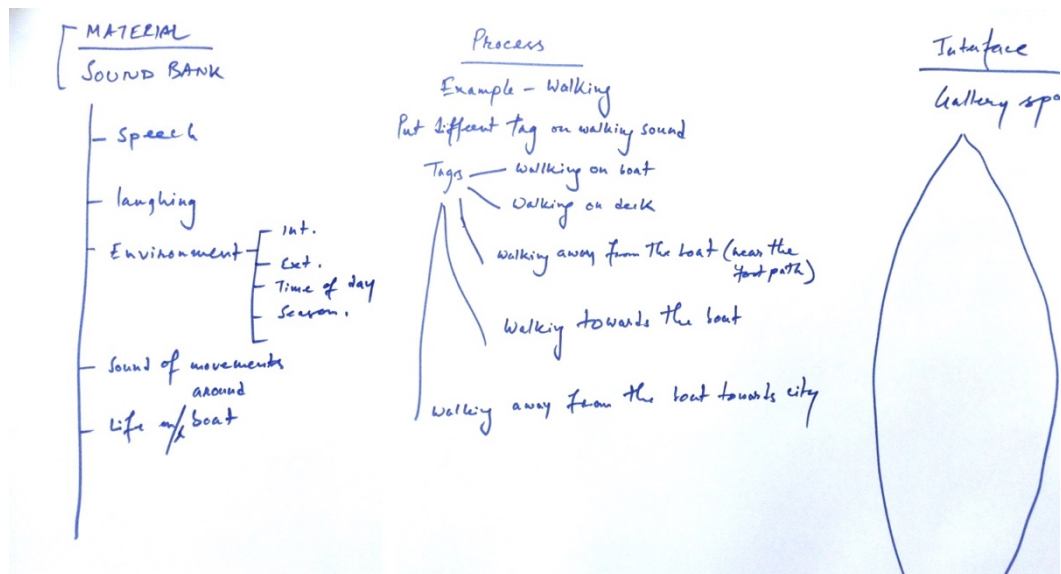 MATERIAL
SOUND BANK
Speech
laughing
Environment
Int.
Ext.
Time of day
Season.
Sound of movements
around
Life boat
Process
Example - Walking
Put different Tag on walking sound
Tags
Walking on boat
Walking on deck
Walking away from the boat (near the
foot path)
Walking towards the boat
Walking away from the boat towards city
Interface
Gallery spa